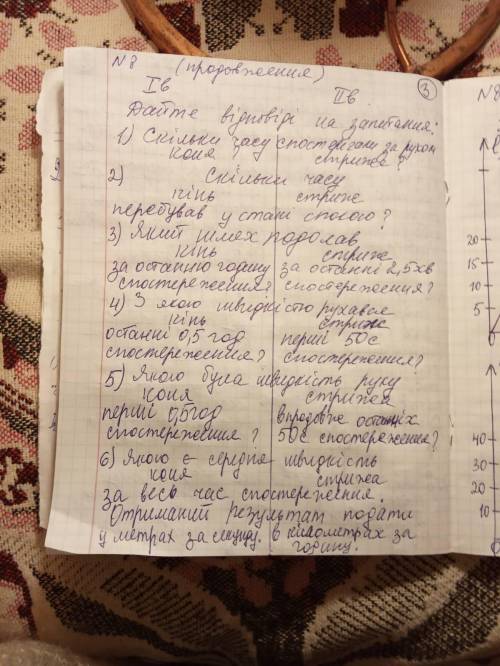 N8 (продовження) 3
Iв IIв
Дайте відповіді на запитання:
1) Скільки часу спостерігали за рухом
коня? стрижа?
2) Скільки часу
кінь стриж
перебував у стані спокою?
3) Який шлях подолав
кінь стриж
за останню годину за останні 2,5 хв
спостереження? спостереження?
4) З якою швидкістю рухався
кінь стриж
останні 0,5 год перші 50с
спостереження? спостереження?
5) Якою була швидкість руху
коня стрижа
перші 0,5 год впродовж останніх
спостереження? 50с спостереження?
6) Якою є середня швидкість
коня стрижа
за весь час спостереження.
Отриманий результат подати
у метрах за секунду. в кілометрах за
годину.
N8
20
15
10
5
0
40
30
20
10